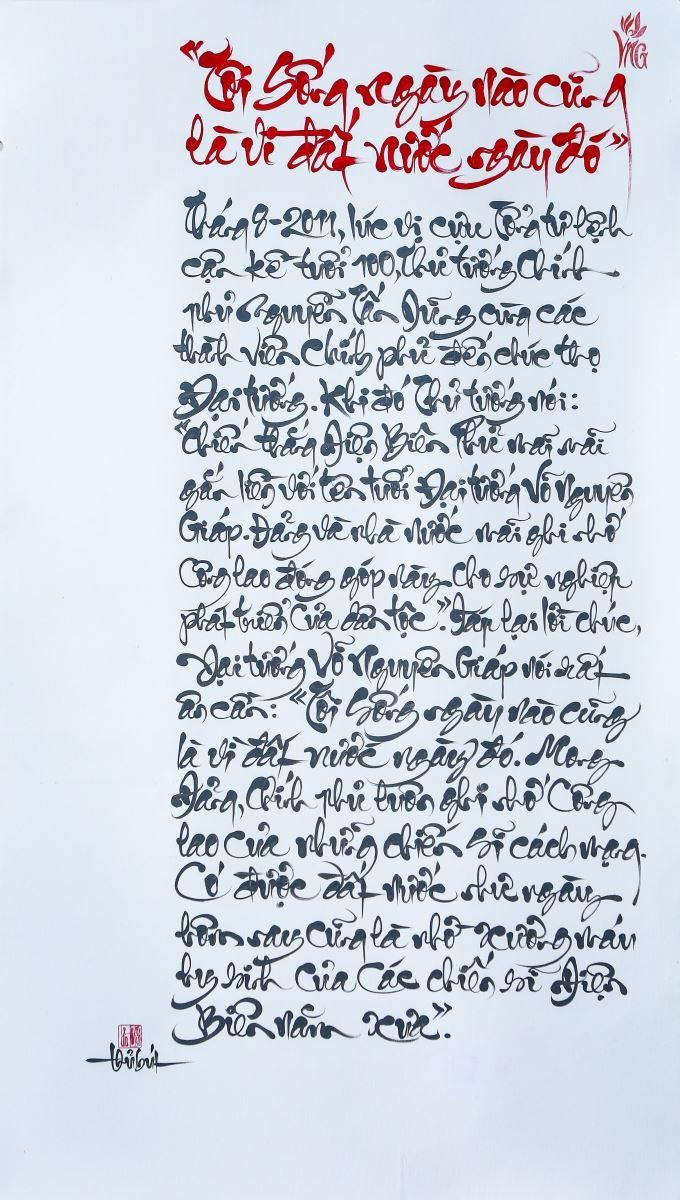 VNG
"Tôi sống ngày nào cũng
là vì đất nước ngày đó"
Tháng 8-2011, lúc vị cựu Tổng tư lệnh
cận kề tuổi 100, Thủ tướng Chính
phủ Nguyễn Tấn Dũng cùng các
thành viên Chính phủ đến chúc thọ
Đại tướng. Khi đó Thủ tướng nói:
"Chiến thắng Điện Biên Phủ mãi mãi
gắn liền với tên tuổi Đại tướng Võ Nguyên
Giáp. Đảng và nhà nước mãi ghi nhớ
Công lao đóng góp này cho sự nghiệp
phát triển của dân tộc". Đáp lại lời chúc,
Đại tướng Võ Nguyên Giáp nói rất
ân cần: "Tôi sống ngày nào cũng
là vì đất nước ngày đó. Mong
Đảng, Chính phủ luôn ghi nhớ Công
lao của những chiến sĩ cách mạng.
Có được đất nước như ngày
hôm nay cũng là nhờ xương máu
hy sinh của các chiến sĩ Điện
Biên năm xưa".